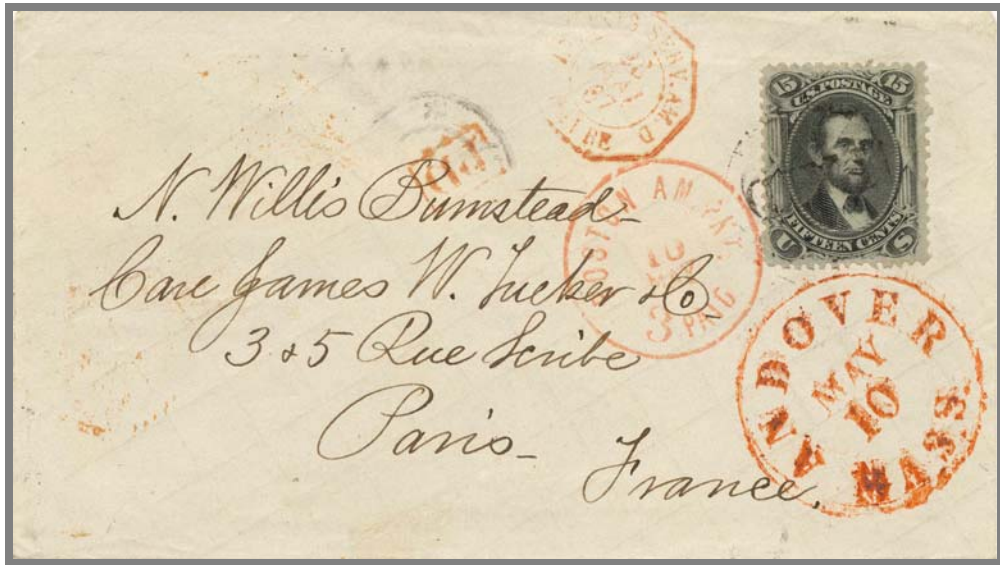 15 15
U.S. POSTAGE.
FIFTEEN CENTS
U S
BOSTON AM. PKT.
10
3 PAID
ANDOVER MASS.
MAY
10
N. Willis Bumstead
Care James W. Tucker & Co
3 & 5 Rue Scribe
Paris
France,